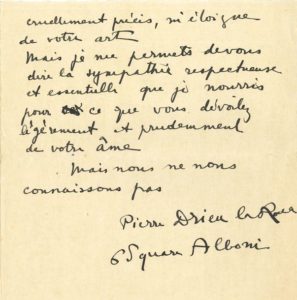 cruellement précis, m'éloigne
de votre art
Mais je me permets de vous
dire la sympathie respectueuse
et essentielle que je nourris
pour ce que vous dévoilez
légèrement et prudemment
de votre âme
Mais nous ne nous
connaissons pas
Pierre Drieu la Rochelle
6 Square Alboni